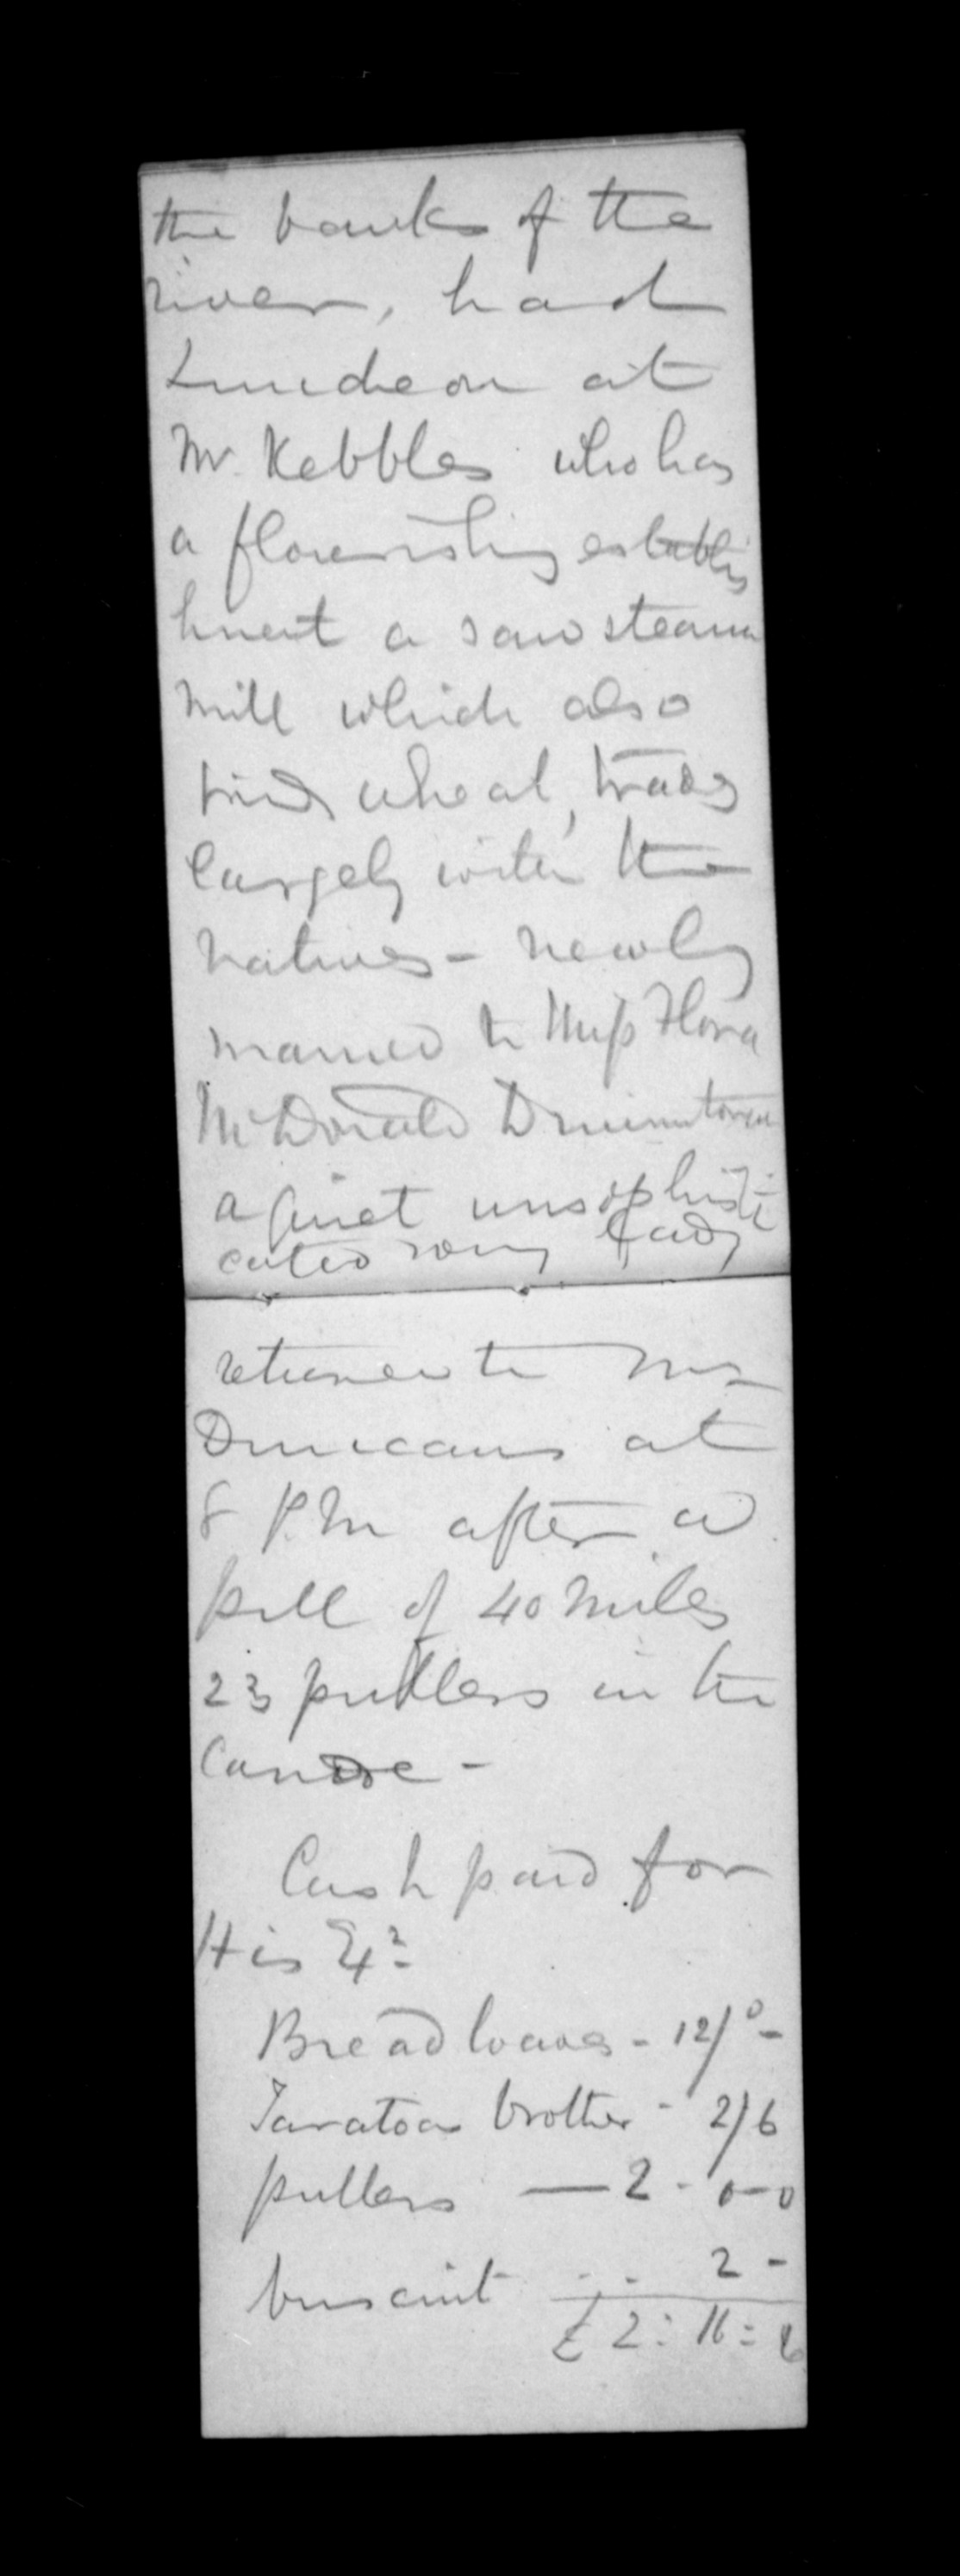 the banks of the
river, had
Luncheon at
Mr. Kebbles who has
a flourishing establis
hment a saw steam
mill which also
wheat, trades
largely with the
natives - newly
married to Miss Flora
McDonald
a quiet unsophisti
cated young Lady
returned to Mr
Duncans at
8 P.M after a
pull of 40 miles
23 pullers in the
Canoe -
Cash paid for
His Ey
Bread loaves - 12/0 -
Taratoas brother - 2/6
pullers — 2 - 0 - 0
buscuit .. 2 -
£ 2: 11: 6